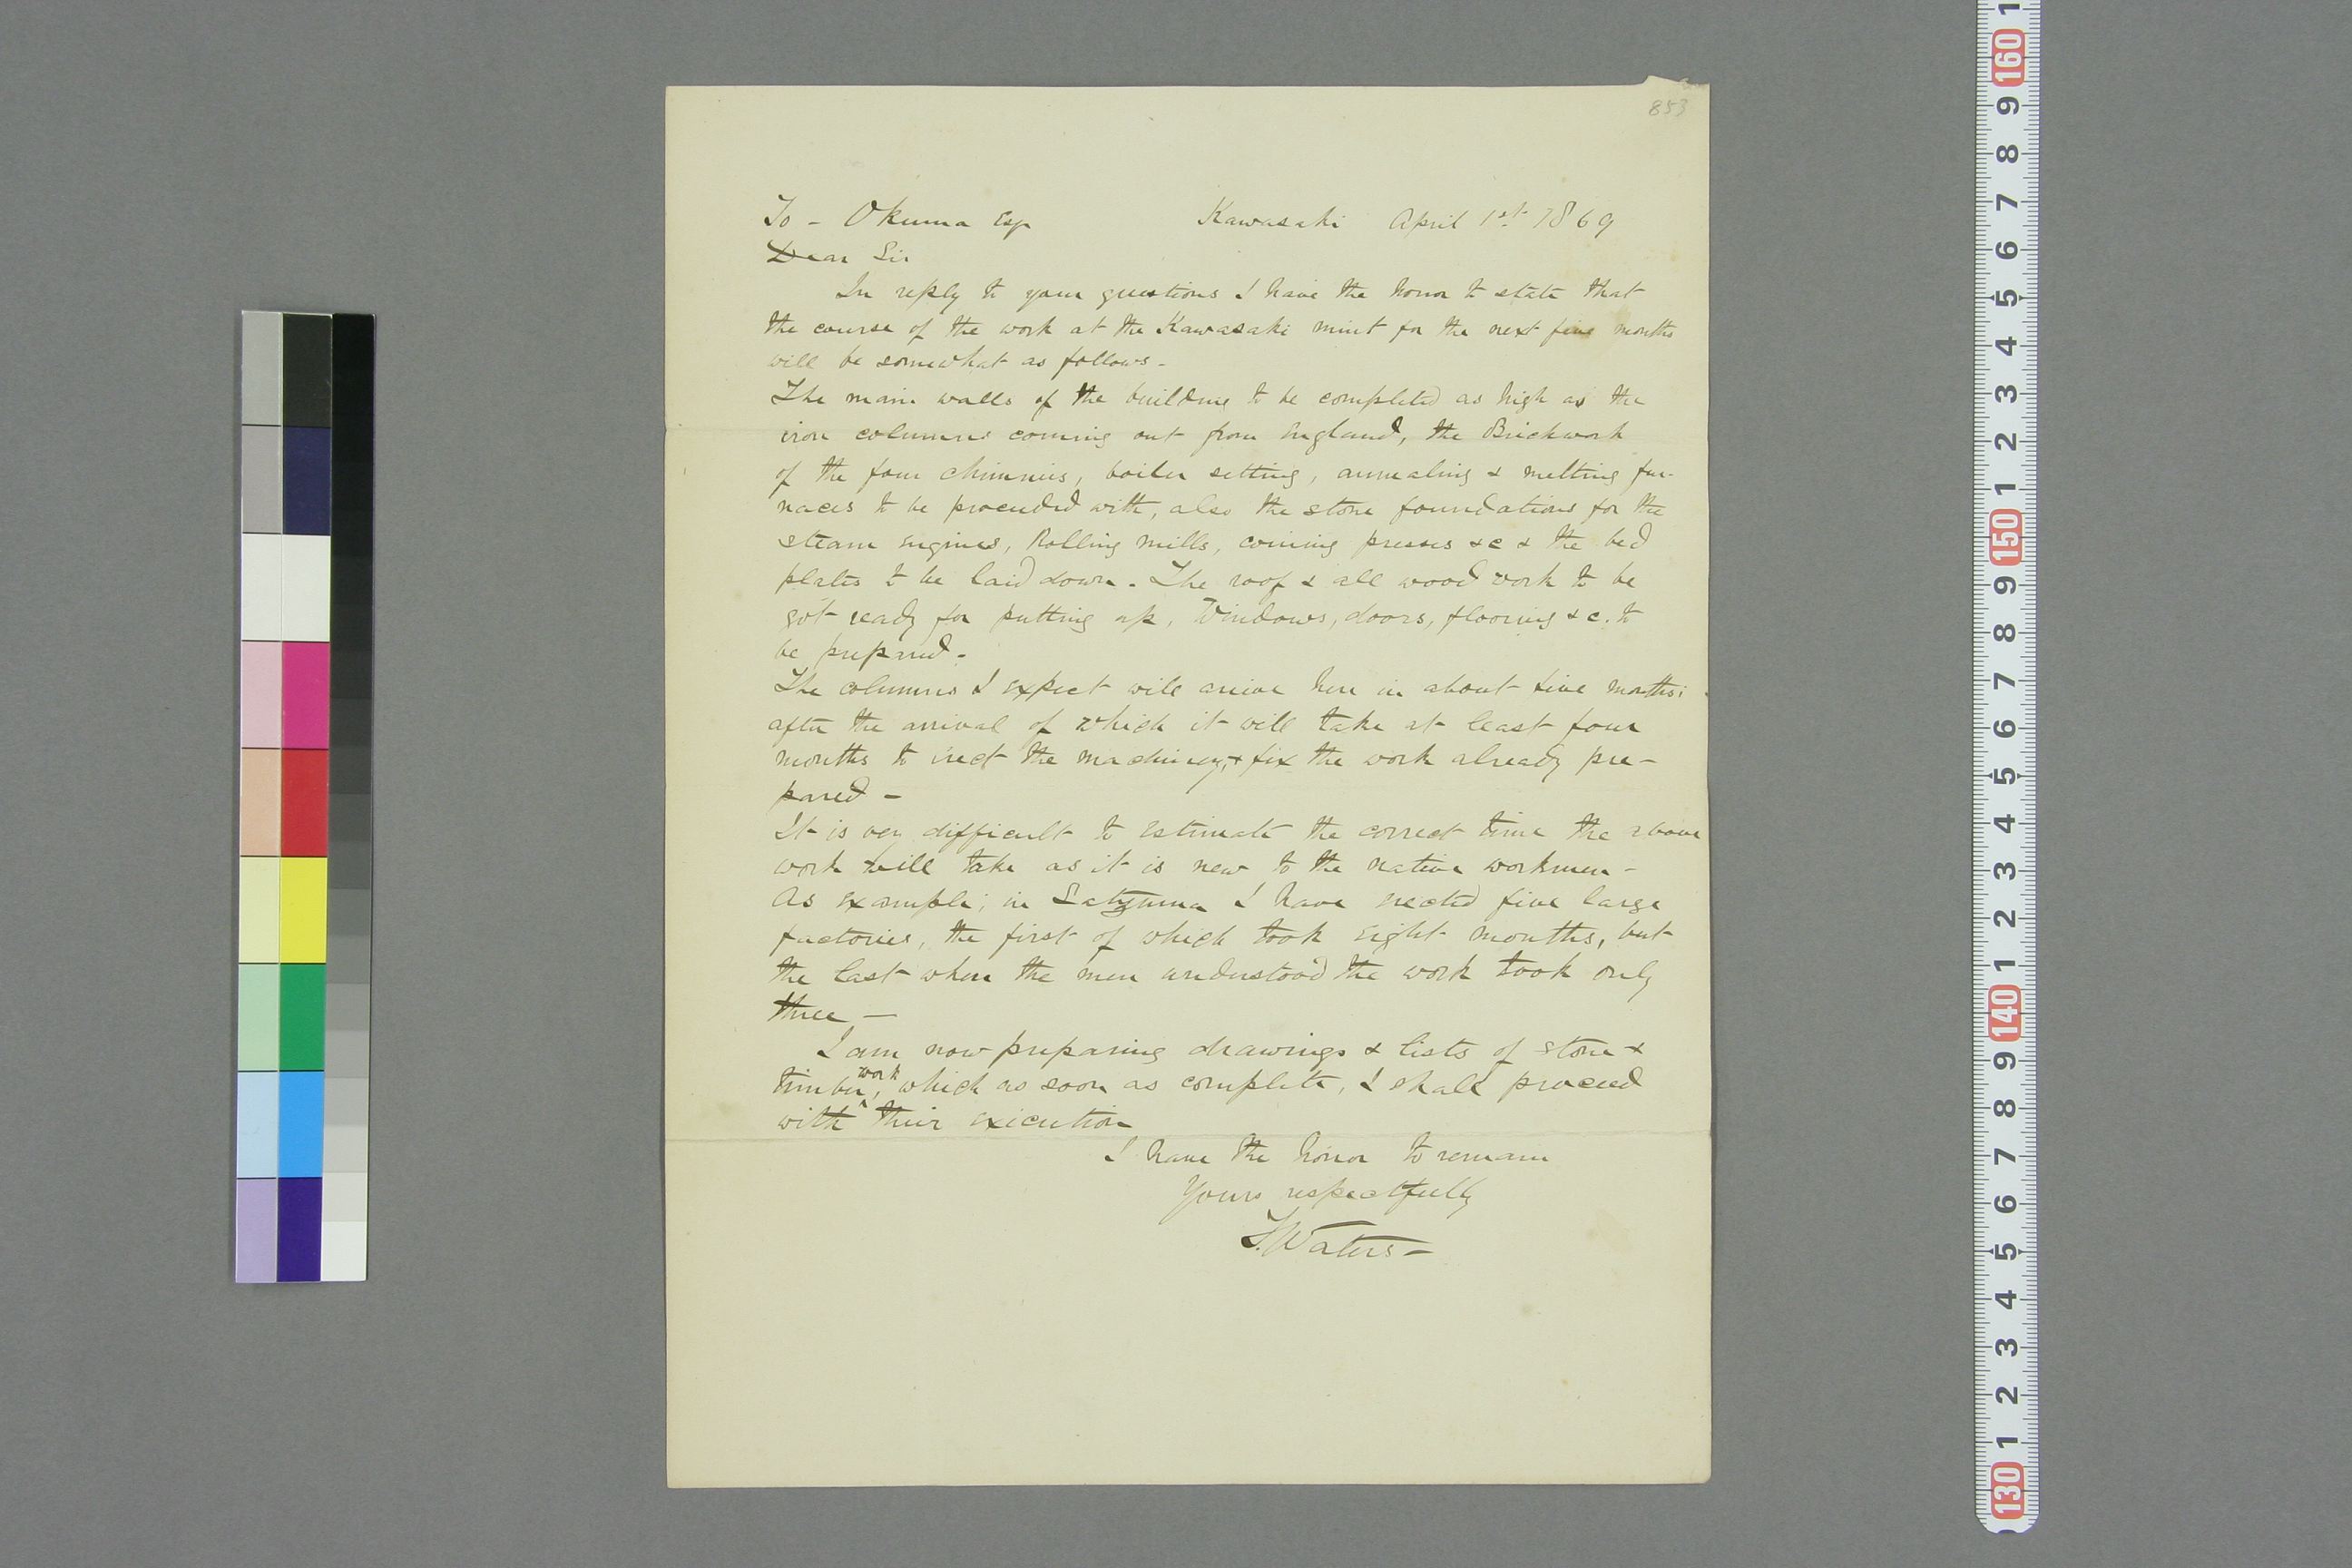 853
To - Okuma Esq Kawasaki April 1st 1869
Dear Sir
In reply to your questions I have the honor to state that
the course of the work at the Kawasaki mint for the next five months
will be somewhat as follows -
The main walls of the building to be completed as high as the
iron columns coming out from England, the Brickwork
of the four chimnies, boiler setting, annealing & melting fur-
naces to be proceeded with, also the stone foundations for the
steam engines, Rolling mills, coining presses &c & the bed
plates to be laid down - The roof & all wood work to be
got ready for putting up, Windows, doors, flooring &c. to
be prepared -
The columns I expect will arrive here in about five months;
after the arrival of which it will take at least four
months to erect the machinery, & fix the work already pre-
pared -
It is very difficult to estimate the correct time the above
work will take as it is new to the native workmen -
As example; in Satzuma I have erected five large
factories, the first of which took eight months, but
the last when the men understood the work took only
three -
I am now preparing drawings & lists of stone &
timber work, which as soon as complete, I shall proceed
with their execution
I have the honor to remain
Yours respectfully
T. Waters -
160 9 8 7 6 5 4 3 2 1
150 9 8 7 6 5 4 3 2 1
140 9 8 7 6 5 4 3 2 1
130